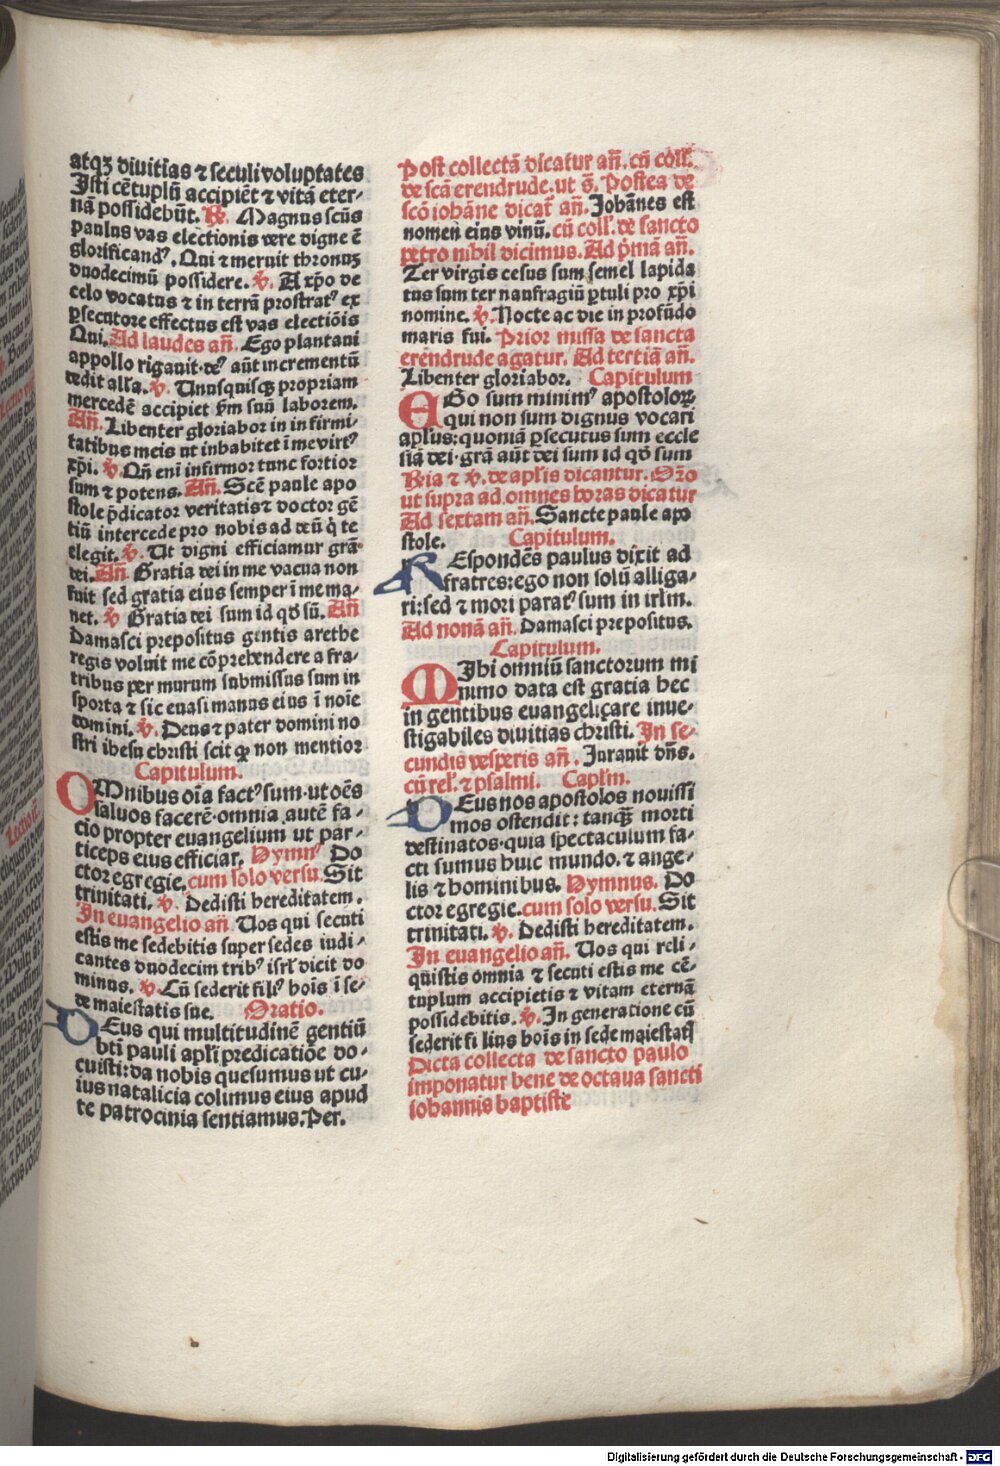 atqꝫ diuitias ⁊ seculi voluptates
Isti cētuplū accipiēt ⁊ vitā eter-
nā possidebūt. ℟. Magnus scūs
paulus vas electionis vere digne ē
glorificandꝰ. Qui ⁊ meruit thronuꝫ
duodecimū possidere. ℣. A xp̄o de
celo vocatus ⁊ in terrā prostratꝰ ex
ꝑsecutore effectus est vas electiōis
Qui. Ad laudes añ. Ego plantaui
appollo rigauit·deꝰ aūt incrementū
dedit alla. ℣. Unusquisqꝫ propriam
mercedē accipiet ẜm suū laborem.
Añ. Libenter gloriabor in infirmi-
tatibus meis ut inhabitet ī me virtꝰ
xp̄i. ℣. Qñ eni infirmor tunc fortior
sum ⁊ potens. Añ. Scē paule apo
stole p̄dicator veritatis ⁊ doctor gē
tiū intercede pro nobis ad deū q̇ te
elegit. ℣. Ut digni efficiamur grā
dei. Añ. Gratia dei in me vacua non
fuit sed gratia eius semper ī me ma-
net. ℣ Gratia dei sum id qd̄ sū. Añ
Damasci prepositus gentis arethe
regis voluit me cōprehendere a fra-
tribus per murum submissus sum in
sporta ⁊ sic euasi manus eius ī noīe
domini. ℣. Deus ⁊ pater domini no
stri ihesu christi scit ꝙ non mentior
Capitulum.
OMnibus oīa factꝰ sum·ut oēs
saluos facerē·omnia autē fa-
cio propter euangelium ut par-
ticeps eius efficiar. Hymnꝰ Do
ctor egregie. cum solo versu. Sit
trinitati. ℣. Dedisti hereditatem.
In euangelio añ Uos qui secuti
estis me sedebitis super sedes iudi-
cantes duodecim tribꝰ isrl̄ dicit do
minus. ℣. Cū sederit filꝰ hoīs ī se-
de maiestatis sue. Oratio.
DEus qui multitudinē gentiū
bt̄i pauli apl̄i predicatiōe do-
cuisti: da nobis quesumus ut cu-
ius natalicia colimus eius apud
te patrocinia sentiamus. Per.
Post collectā dicatur añ. cū coll'.
de scā erendrude. ut s̄. Postea de
scō iohāne dicat̄ añ. Johānes est
nomen eius vinū. cū coll'. de sancto
petro nihil dicimus. Ad p̄mā añ.
Ter virgis cesus sum semel lapida
tus sum ter naufragiū ꝑtuli pro xp̄i
nomine. ℣. Nocte ac die in profūdo
maris fui. Prior missa de sancta
erendrude agatur. Ad tertiā añ.
Libenter gloriabor. Capitulum
EGo sum minimꝰ apostoloꝝ
qui non sum dignus vocari
apl'us: quoniā ꝑsecutus sum eccle
siā dei·grā aūt dei sum id qd̄ sum
℟ia ⁊ ℣. de apl'is dicantur. Orō
ut supra ad omnes horas dicatur
Ad sextam añ. Sancte paule apo
stole. Capitulum.
REspondēs paulus dixit ad
fratres: ego non solū alliga-
ri: sed ⁊ mori paratꝰ sum in irl̄m.
Ad nonā añ. Damasci prepositus.
Capitulum.
MIhi omniū sanctorum mi
nimo data est gratia hec
in gentibus euangeliçare inue-
stigabiles diuitias christi. In se-
cundis vesperis añ. Jurauit dn̄s.
cū rel'. ⁊ psalmi. Capl'm.
DEus nos apostolos nouissi
mos ostendit: tanqꝫ morti
destinatos·quia spectaculum fa-
cti sumus huic mundo. ⁊ ange-
lis ⁊ hominibus. Hymnus. Do
ctor egregie. cum solo versu. Sit
trinitati. ℣. Dedisti hereditatem.
In euangelio añ. Uos qui reli-
quistis omnia ⁊ secuti estis me cē-
tuplum accipietis ⁊ vitam eternā
possidebitis. ℣. In generatione cū
sederit fi lius hoīs in sede maiestatꝭ
Dicta collecta de sancto paulo
imponatur bene de octaua sancti
iohannis baptiste
Digitalisierung gefördert durch die Deutsche Forschungsgemeinschaft - DFG